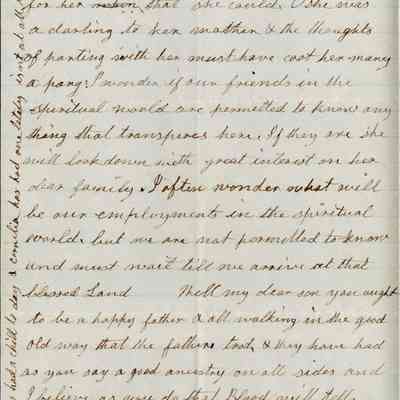 for her return that she could. O she was
a darling to her mother & the thoughts
of parting with her must have cost her many
a pang. I wonder if our friends in the
spiritual world are permitted to know any
thing that transpires here. If they are she
will look down with great interest on her
dear family. I often wonder what will
be our employments in the spiritual
world. but we are not permitted to know
and must wait till we arrive at that
blessed Land Well my dear son you ought
to be a happy father & all walking in the good
old way that the fathers trod, & they have had
as you say a good ancestry on all sides and
I believe as you do that Blood will tell
had a chill to day & Cornelia has had one lately isnt at all